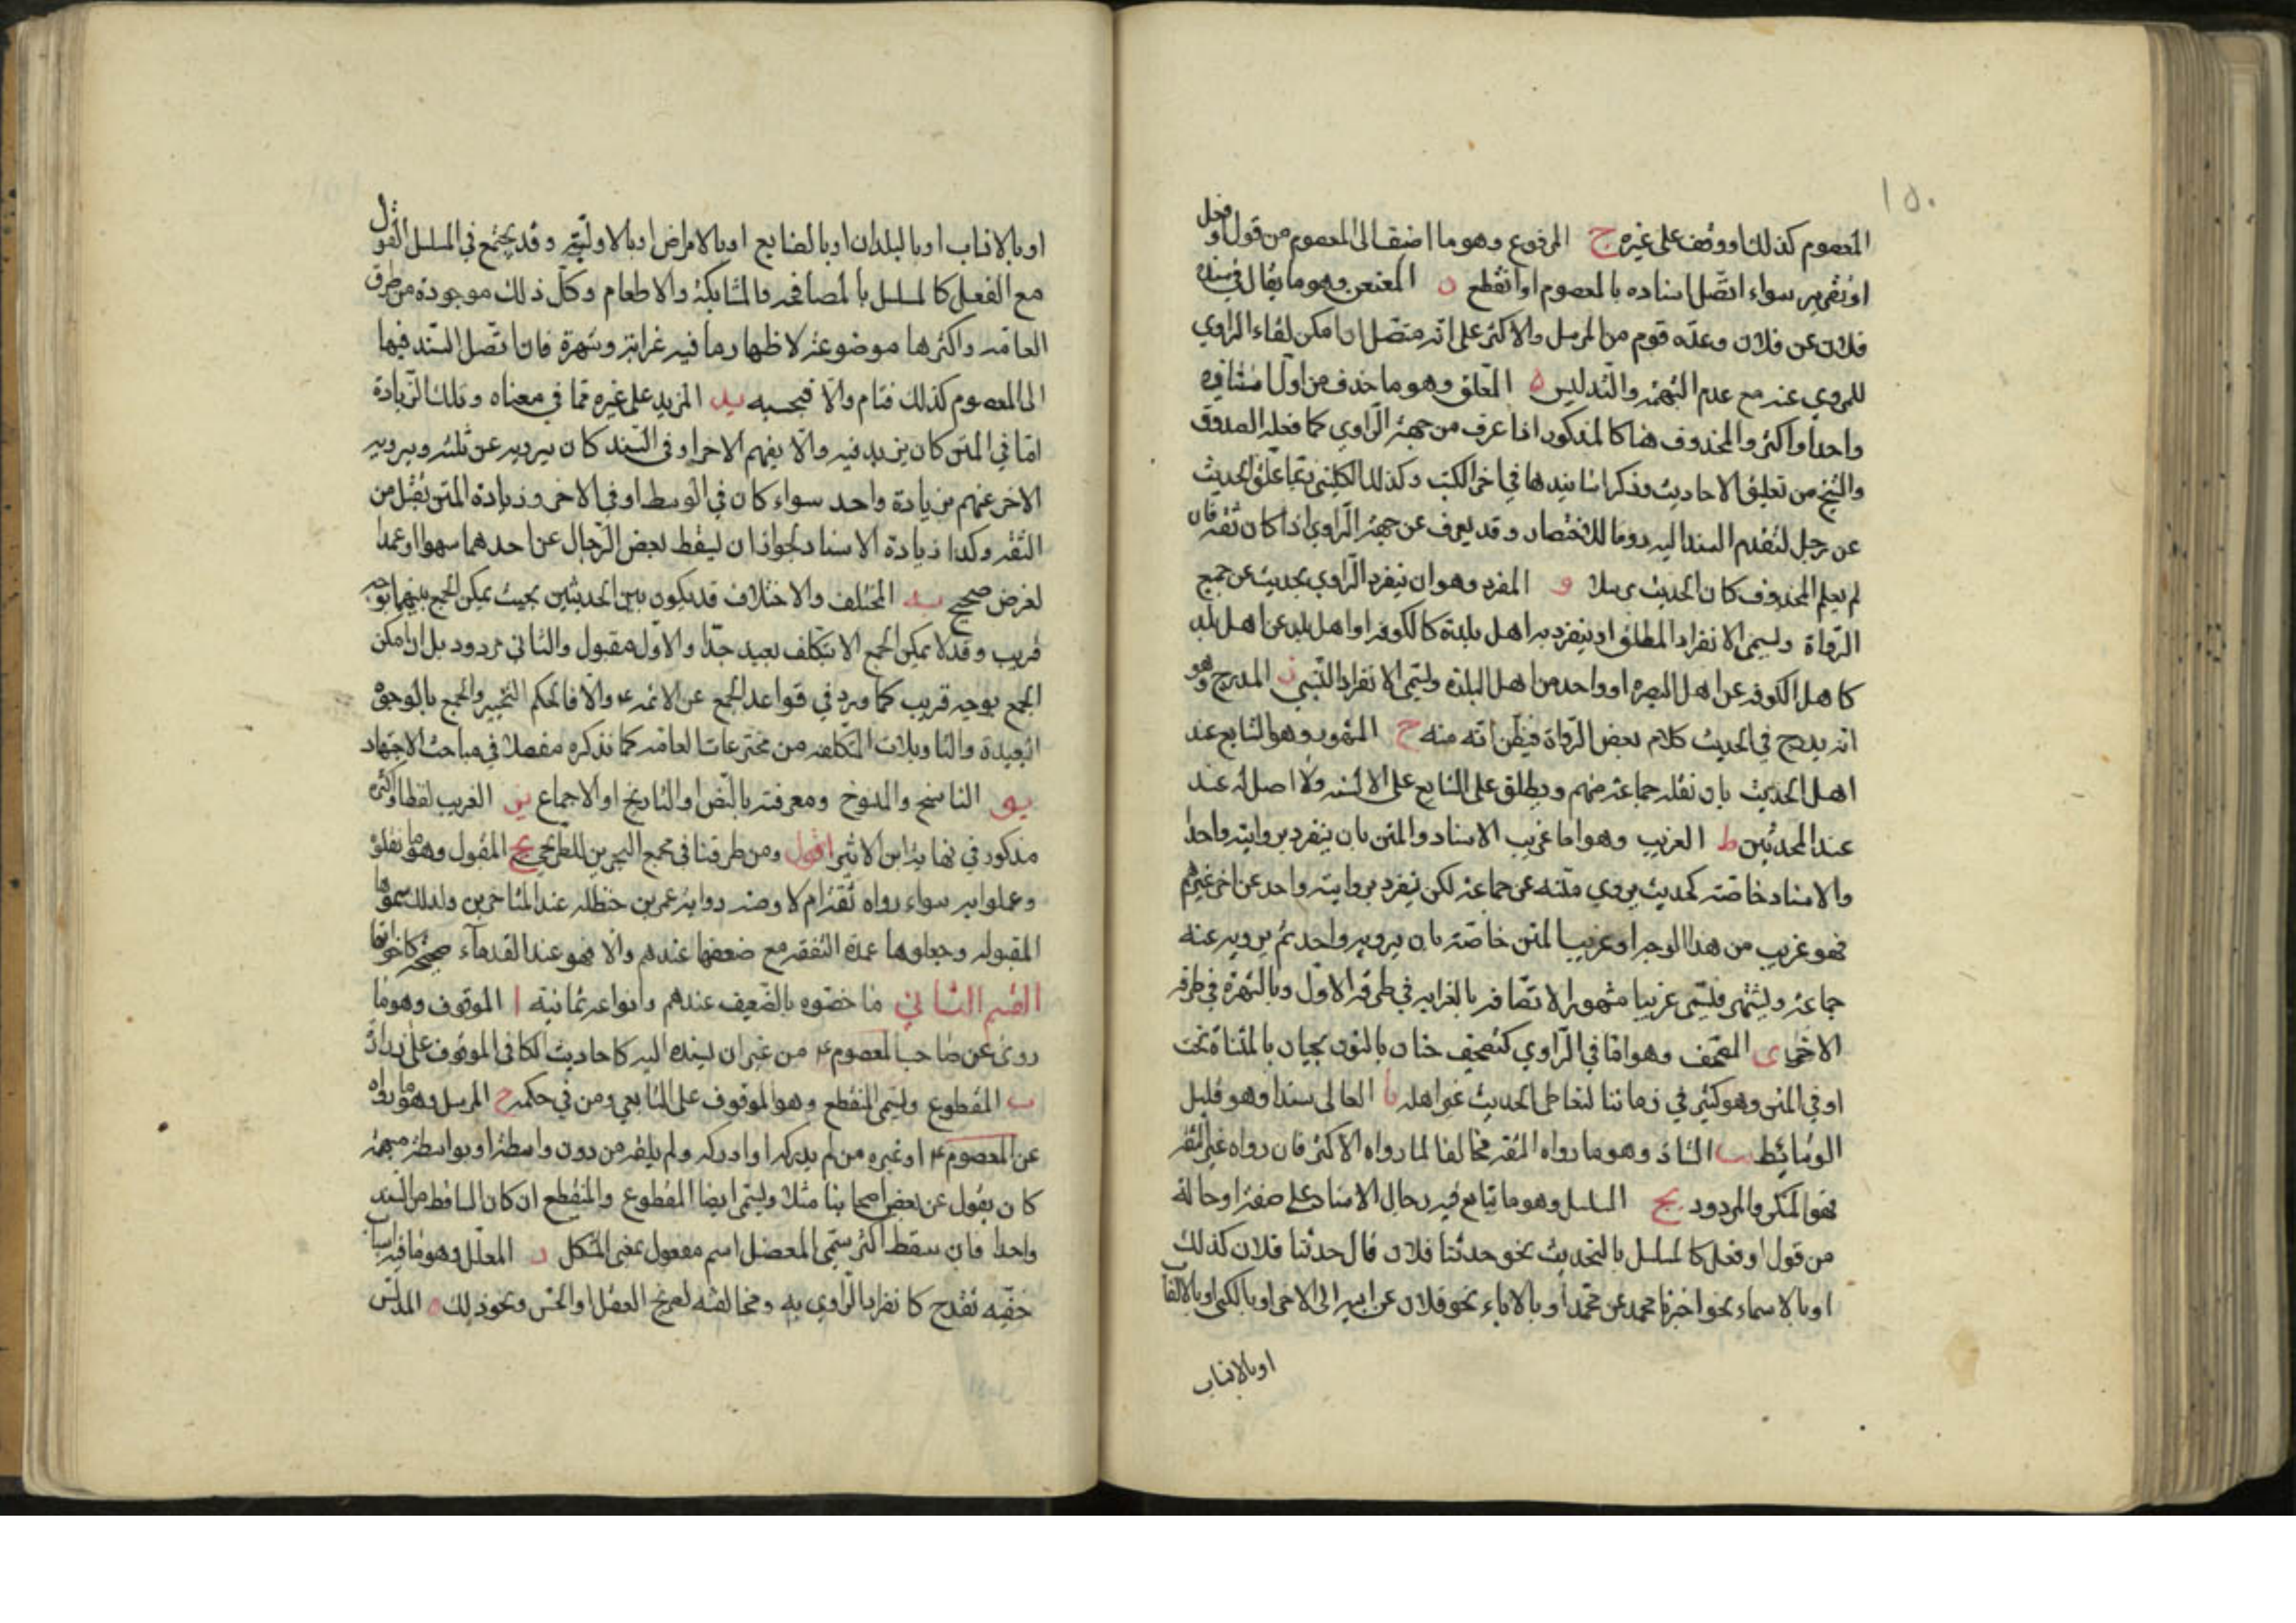 ١٥٠
المعصوم كذلك او وقف على غيره ج المرفوع وهو ما اضيف الى المعصوم من قول او فعل
او تقرير سواء اتصل اسناده بالمعصوم او انقطع د المعنعن وهو ما يقال في سنده
فلان عن فلان وعده قوم من المرسل والاكثر على انه متصل ان امكن لقاء الراوي
للمروي عنه مع عدم التهمة والتدليس ه المعلق وهو ما حذف من اول اسناده
واحدا واكثر والمحذوف هنا كالمذكور اذا عرف من جهة الراوي كما فعله الصدوق
والشيخ من تعليق الاحاديث وذكر اسانيدها في اخر الكتب وكذلك الكليني ربما علق الحديث
عن رجل لتقدم السند اليه روما للاختصار وقد يعرف عن جهة الراوي اذا كان ثقة فان
لم يعلم المحذوف كان الحديث مرسلا و المفرد وهو ان ينفرد الراوي بحديث عن جميع
الرواة ويسمى الانفراد المطلق او ينفرد به اهل بلدة كالكوفة او اهل بلد عن اهل بلد
كاهل الكوفة عن اهل البصرة او واحد من اهل البلدة ويسمى الانفراد النسبي ز المدرج وهو
انه يدرج في الحديث كلام بعض الرواة فيظن انه منه ح المشهور وهو الشايع عند
اهل الحديث بان نقله جماعة منهم ويطلق على الشايع على الالسنة ولا اصل له عند
عند المحدثين ط الغريب وهو اما غريب الاسناد والمتن بان ينفرد بروايته واحد
والاسناد خاصة كحديث يروي متنه عن جماعة لكن ينفرد بروايته واحد عن اخر غيرهم
فهو غريب من هذا الوجه او غريب المتن خاصة بان يرويه واحد ثم يرويه عنه
جماعة ويشتهر فيسمى غريبا مشهورا لاتصافه بالغرابة في طرفه الاول وبالشهرة في طرفه
الاخر ى المصحف وهو اما في الراوي كتصحيف حنان بالنون بحيان بالمثناة تحت
او في المتن وهو كثير في زماننا لتعاطي الحديث غير اهله يا العالى سندا وهو قليل
الوسائط يب الشاذ وهو ما رواه الثقة مخالفا لما رواه الاكثر فان رواه غير الثقة
فهو المنكر والمردود يج المسلسل وهو ما تتابع فيه رجال الاسناد على صفة او حالة
من قول او فعل كالمسلسل بالتحديث نحو حدثنا فلان قال حدثنا فلان كذلك
او بالاسماء نحو اخبرنا محمد عن محمد او بالاباء نحو فلان عن ابيه الى الاخر او بالكنى او بالالقاب
او بالانساب
او بالانساب او بالبلدان او بالصنايع او بالامراض او بالاولية وقد يجتمع في المسلسل القول
مع الفعل كالمسلسل بالمصافحة والمشابكة والاطعام وكل ذلك موجودة من طرق
العامة واكثرها موضوعة لاظهار ما فيه غرابة وشهرة فان اتصل السند فيها
الى المعصوم كذلك فتام والا فبحسبه يد المزيد على غيره مما في معناه وتلك الزيادة
اما في المتن كان يزيد فيه والا يفهم الاخر او في السند كان يرويه عن ثلثة ويرويه
الاخر عنهم بزيادة واحد سواء كان في الوسط او في الاخر وزيادة المتن تقبل من
الثقة وكذا زيادة الاسناد لجواز ان يسقط بعض الرجال عن احدهما سهوا او عمدا
لغرض صحيح يه المختلف والاختلاف قد يكون بين الحديثين بحيث يمكن الجمع بينهما بوجه
قريب وقد لا يمكن الجمع الا بتكلف بعيد جدا والاول مقبول والثاني مردود بل ان امكن
الجمع بوجه قريب كما ورد في قواعد الجمع عن الائمة ع والا فالحكم التخيير والجمع بالوجوه
البعيدة والتاويلات المتكلفة من مخترعات العامة كما نذكره مفصلا في مباحث الاجتهاد
يو الناسخ والمنسوخ ومعرفته بالنص او التاريخ او الاجماع يز الغريب لفظا واكثره
مذكور في نهاية ابن الاثير اقول ومن طرقنا في مجمع البحرين للطريحي يح المقبول وهو ما نقلوه
وعملوا به سواء رواه ثقة ام لا ومنه رواية عمر بن حنظلة عند المتاخرين ولذلك سموها
المقبولة وجعلوها عمدة التفقه مع ضعفها عندهم والا فهو عند القدماء صحيح كاخواتها
القسم الثاني ما خصوه بالضعيف عندهم وانواعه ثمانية ا الموقوف وهو ما
روى عن صاحب المعصوم ع من غير ان يسنده اليه كاحاديث الكافي الموقوف على زرارة
ب المقطوع ويسمى المنقطع وهو الموقوف على التابعي ومن في حكمه ج المرسل وهو ما رواه
عن المعصوم ع او غيره من لم يدركه او ادركه ولم يلقه من دون واسطة او بواسطة مبهمة
كان يقول عن بعض اصحابنا مثلا ويسمى ايضا المقطوع والمنقطع ان كان الساقط من السند
واحدا فان سقط اكثر سمى المعضل اسم مفعول بمعنى المشكل د المعلل وهو ما فيه اسباب
خفيه تقدح كانفراد الراوي به ومخالفته لصريح العقل او الحس ونحو ذلك ه المدلس